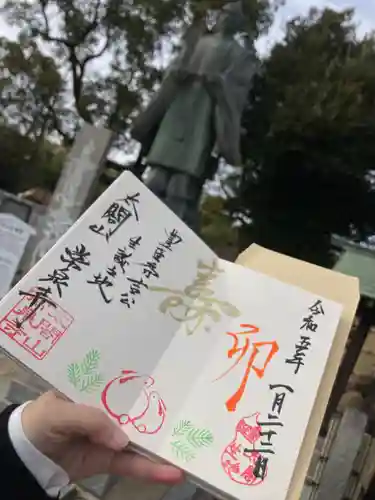 令和五年
一月二十二日
卯
寿
豊臣秀吉公
生誕之地
太閤山
常泉寺